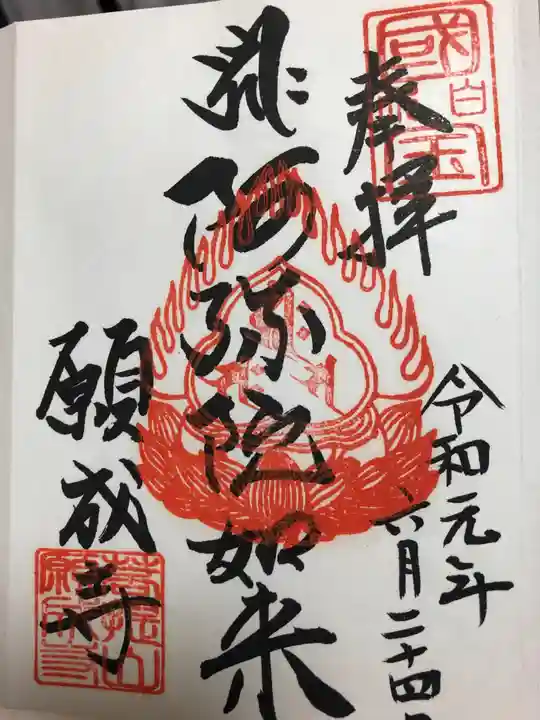 國宝
奉拝
令和元年
六月二十四
阿弥陀如来
願成寺